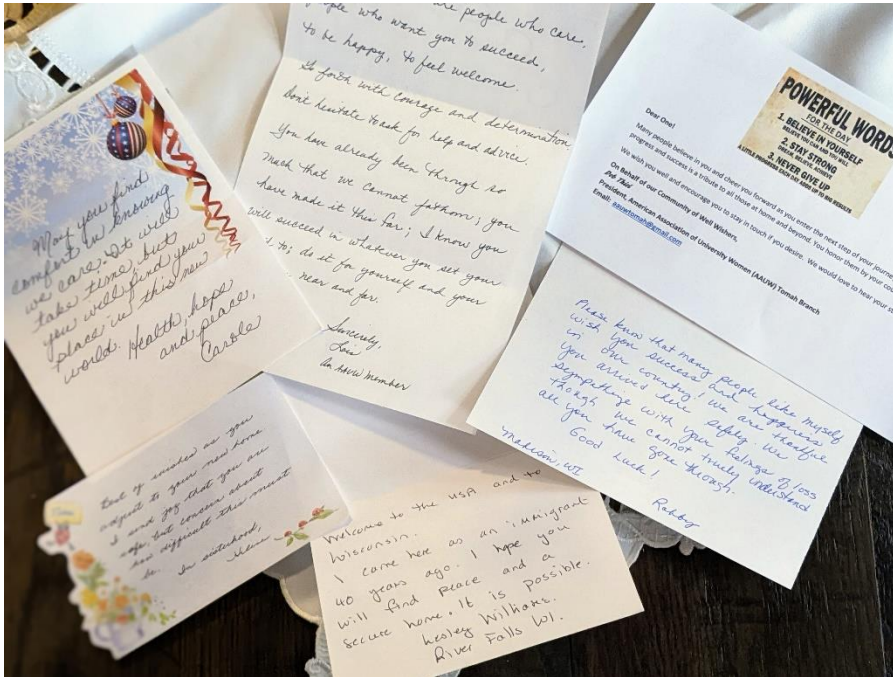 May you find
comfort in knowing
we care. It will
take time, but
you will find your
place in this new
world. Health, hope
and peace,
Carole
are people who care,
people who want you to succeed,
to be happy, to feel welcome.
Go forth with courage and determination
Don't hesitate to ask for help and advice.
You have already been through so
much that we cannot fathom; you
have made it this far; I know you
will succeed in whatever you set your
to; do it for yourself and your
near and far.
Sincerely,
Lois
An AAUW member
POWERFUL WORDS
FOR THE DAY
1. BELIEVE IN YOURSELF
BELIEVE YOU CAN AND YOU WILL
2. STAY STRONG
DREAM, BELIEVE, ACHIEVE
3. NEVER GIVE UP
A LITTLE PROGRESS EACH DAY ADDS UP TO BIG RESULTS
Dear One!
Many people believe in you and cheer you forward as you enter the next step of your journe
progress and success is a tribute to all those at home and beyond. You honor them by your cou
We wish you well and encourage you to stay in touch if you desire. We would love to hear your st
On Behalf of our Community of Well Wishers,
President, American Association of University Women (AAUW) Tomah Branch
Email: aauwtomah@gmail.com
Please know that many people like myself
wish you success and happiness
in our country! We are thankful
you arrived here safely. We
sympathize with your feelings of loss
though we cannot truly understand
all you have gone through.
Good Luck!
Madison, WI
Best of wishes as you
adjust to your new home
I send joy that you are
safe, but concern about
how difficult this must
be.
In sisterhood,
Welcome to the USA and to
Wisconsin.
I came here as an immigrant
40 years ago. I hope you
will find peace and a
secure home. It is possible.
Lesley Williams.
River Falls WI.